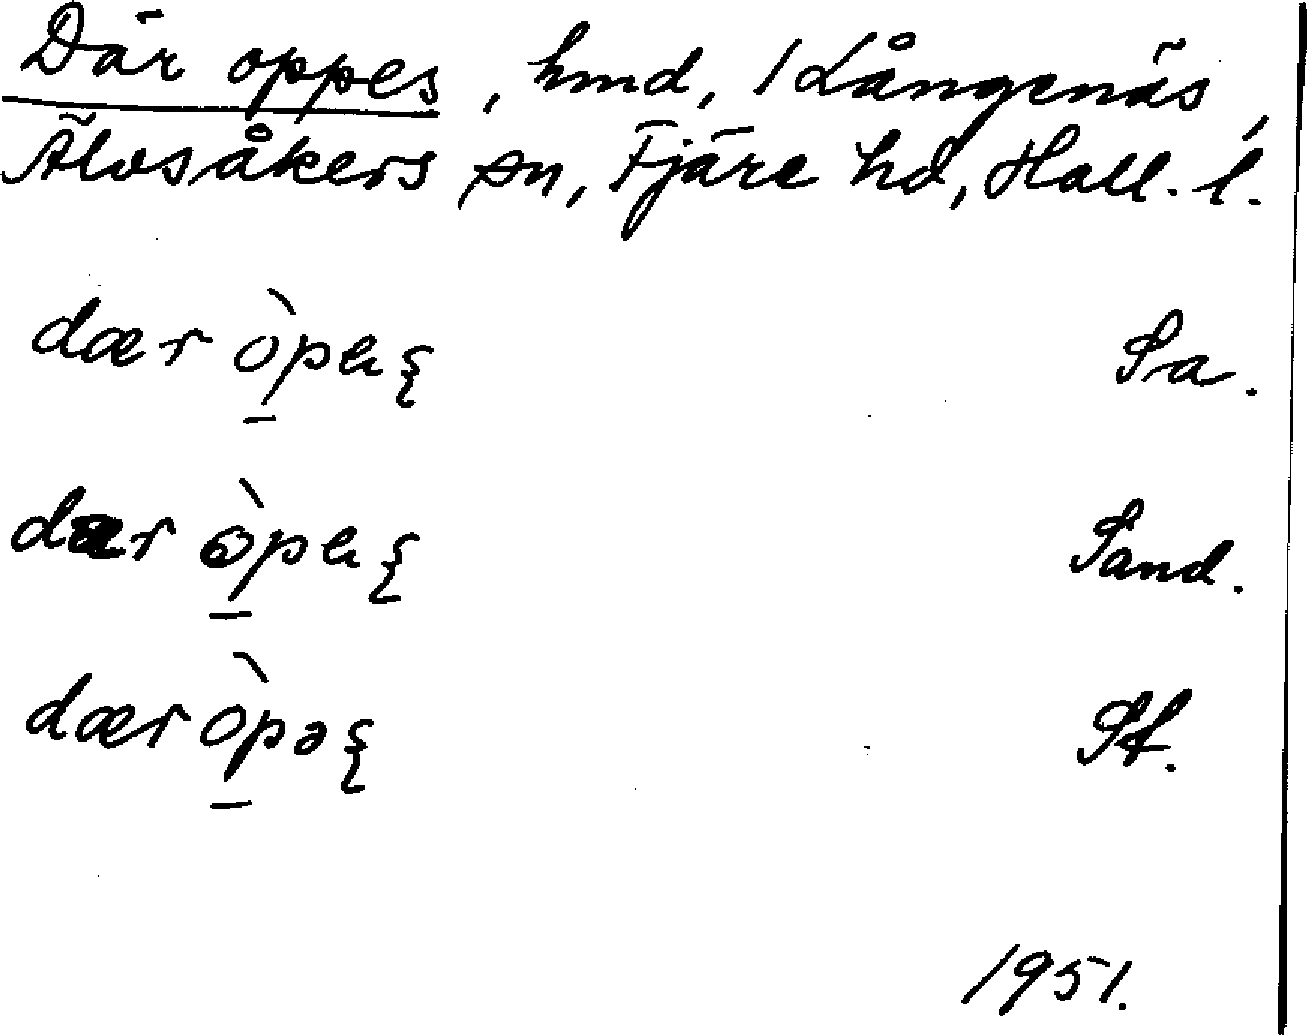 Där oppes, hmd, 1 Långenäs,
Älvsåkers sn, Fjäre hd, Hall. l.
dær òp̱aʂ Sa.
dær òp̱aʂ Sand.
dær òp̱əʂ St.
1951.